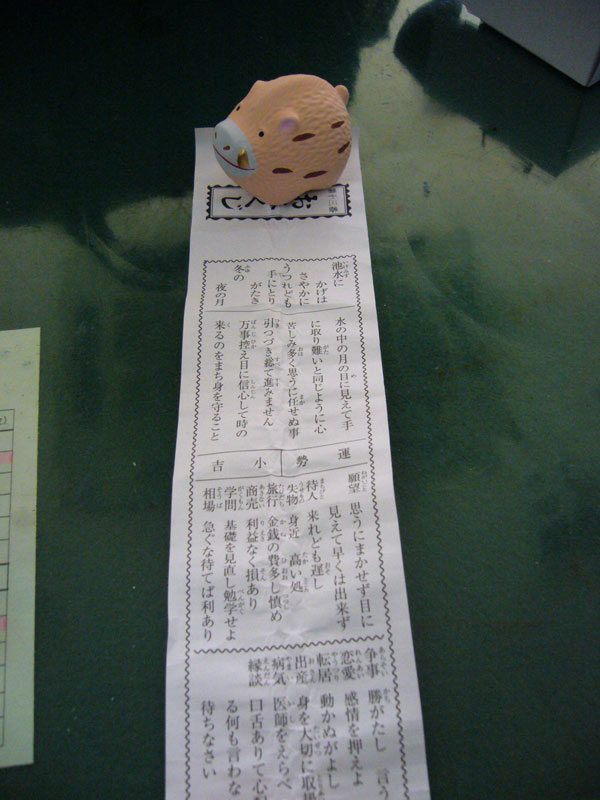 おみくじ
池水に
かげは
さやかに
うつれども
手にとり
がたき
冬の
夜の月
水の中の月の目に見えて手
に取り難いと同じように心
苦しみ多く思うに任せぬ事
引つづき総て進みません
万事控え目に信心して時の
来るのをまち身を守ること
運勢 小吉
願望 思うにまかせず目に
見えて早くは出来ず
待人 来れども遅し
失物 身近 高い処
旅行 金銭の費多し慎め
商売 利益なく損あり
学問 基礎を見直し勉学せよ
相場 急ぐな待てば利あり
争事 勝がたし 言う
恋愛 感情を押えよ
転居 動かぬがよし
出産 身を大切に取
病気 医師をえらべ
縁談 口舌ありて心
る何も言わな
待ちなさい